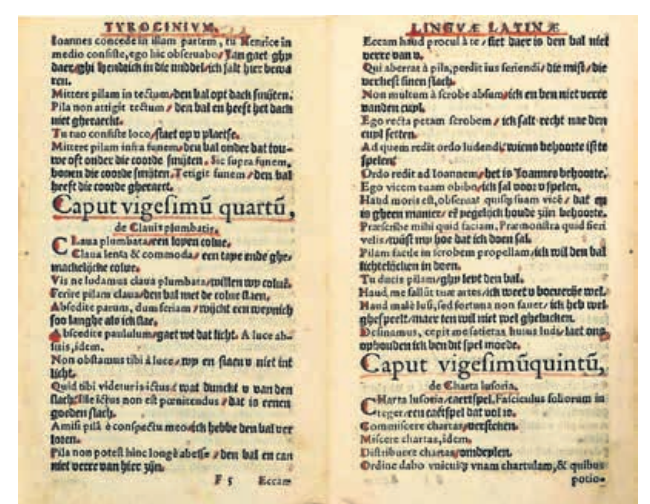 TYROCINIVM.
Ioannes concede in illam partem, tu Henrice in
medio consiste, ego hic obseruabo/ Jan gaet ghy
daer/ghi Hendrick in die middel/ick salt hier bewa
ren.
Mittere pilam in tectum/ den bal opt dack smijten.
Pila non attigit tectum / den bal en heeft het dack
niet gheraeckt.
Tu tuo consiste loco/ staet op v plaetse.
Mittere pilam infra funem/ den bal onder dat tou-
we oft onder die coorde smijten. Sic supra funem,
bouen die coorde smijten. Tetigit funem / den bal
heeft die coorde gheraert.
Caput vigesimũ quartũ,
de Clauis plumbatis.
CLaua plumbata/een lopen colue.
Claua lenta & commoda/ een tape ende ghe-
mackelijcke colue.
Vis ne ludamus claua plumbata/willen wy coluẽ.
Ferire pilam claua/den bal met de colue slaen.
Absedite parum, dum feriam / wijckt een weynich
soo langhe als ick slae.
Absedite paululum/gaet wt dat licht. A luce ab-
sistis, idem.
Non obstamus tibi à luce/ wy en staen v niet int
licht.
Quid tibi videtur is ictus? wat dunckt v van den
slach? Ille ictus non est pœnitendus / dat is eenen
goeden slach.
Amisi pilã è conspectu meo/ick hebbe den bal ver
loren.
Pila non potest hinc longè abesse / den bal en can
niet verre van hier zijn.
F 5 Eccam
LINGVÆ LATINÆ
Eccam haud procul à te / siet daer is den bal niet
verre van v.
Qui aberrat à pila, perdit ius feriendi/ die mist/ die
verliest sinen slach.
Non multum à scrobe absum/ick en ben niet verre
vanden cuyl.
Ego recta petam scrobem / ick salt recht nae den
cuyl setten.
Ad quem redit ordo ludendi/ wiens behoorte ist te
spelen?
Ordo redit ad Ioannem/ het is Joannes behoorte.
Ego vicem tuam obibo/ick sal voor v spelen.
Haud moris est, obseruat quisq; suam vicẽ/ dat en
is gheen manier/ eẽ yegelijck houde zijn behoorte.
Præscribe mihi quid faciam, Præmonstra quid fieri
velis/ wijst my hoe dat ick doen sal.
Pilam facile in scrobem propellam/ick wil den bal
lichtelijcken in doen.
Tu ducis pilam/ ghy leyt den bal.
Haud me fallũt tuæ artes/ick weet v boeuerije wel.
Haud malè lusi, sed fortuna non fauet/ ick heb wel
ghespeelt/ maer ten wil niet wel ghelucken.
Desinamus, cepit me satietas huius ludi/ laet ons
ophouden ick ben dit spel moede.
Caput vigesimũquintũ,
de Charta lusoria.
CHarta lusoria/caertspel. Fasciculus foliorum in
teger/een caertspel dat vol is.
Commiscere chartas/versteken.
Miscere chartas, idem.
Distribuere chartas/omdeylen.
Ordine dabo vnicuiq; vnam chartulam, & quibus
potio-